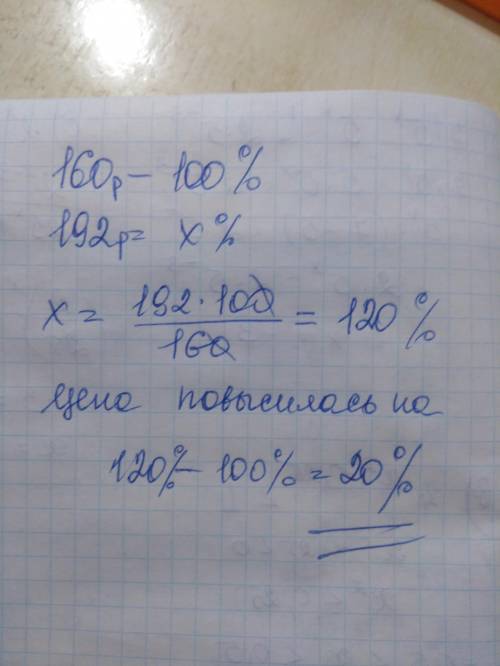 160р - 100%
192р = x%
x = 192 · 100 / 160 = 120%
Цена повысилась на
120% - 100% = 20%